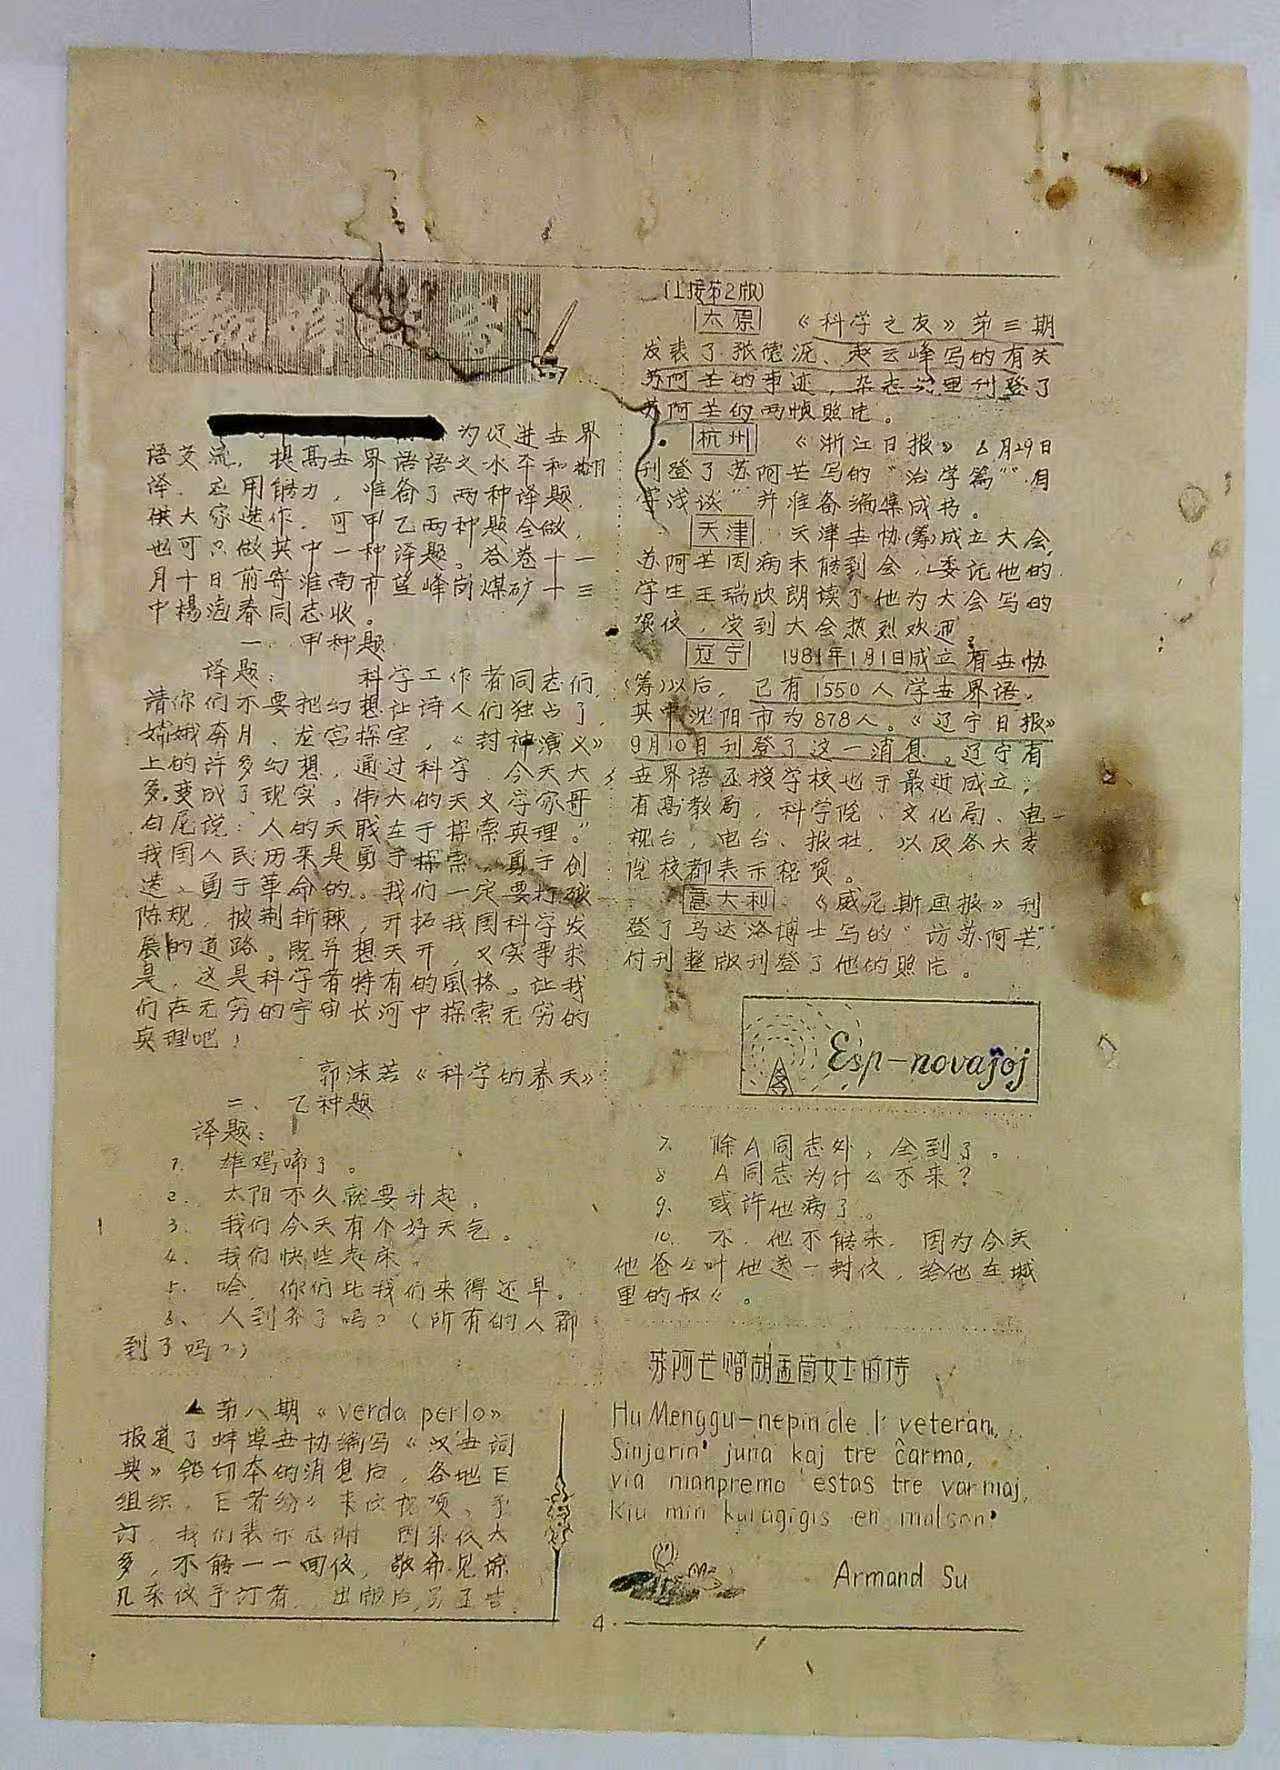 为促进世界
语交流，提高世界语语文水平和翻
译、应用能力，准备了两种译题，
供大家选作，可甲乙两种题全做，
也可只做其中一种译题。答卷十一
月十日前寄淮南市望峰岗煤矿十三
中楊海春同志收。
一、甲种题
译题： 科学工作者同志们，
請你们不要把幻想让诗人们独占了，
嫦娥奔月、龙宫探宝，《封神演义》
上的许多幻想，通过科学，今天大
多变成了现实。伟大的天文学家哥
白尼说：“人的天职在于探索真理。”
我国人民历来是勇于探索、勇于创
造、勇于革命的。我们一定要打破
陈规，披荆斩棘，开拓我国科学发
展的道路。既异想天开，又实事求
是，这是科学者特有的風格。让我
们在无穷的宇宙长河中探索无穷的
真理吧！
郭沫若《科学的春天》
二、乙种题
译题：
1. 雄鸡啼了。
2. 太阳不久就要升起。
3. 我们今天有个好天气。
4. 我们快些起床。
5. 哈，你们比我们来得还早。
6、人到齐了吗？（所有的人都
到了吗？）
▲第八期《verda perlo》
报道了蚌埠世协编写《汉世词
典》 的消息后，各地E
组织、E者纷々来信祝贺、予
订，我们表示感谢 因来信太
多，不能一一回信，敬希见谅
凡来信予订者，出版后另 告
（上接第2版）
太原 《科学之友》第三期
发表了张德 、赵云峰写的有关
苏阿芒的事迹，杂志 里刊登了
苏阿芒的两帧照片。
杭州 《浙江日报》6月29日
刊登了苏阿芒写的“治学篇”“自
学浅谈”并准备编集成书。
天津 天津世协(筹)成立大会，
苏阿芒因病未能到会，委託他的
学生王瑞欣朗读了他为大会写的
贺信，受到大会热烈欢迎
辽宁 1981年1月1日成立有世协
(筹)以后，已有1550人学世界语，
其中沈阳市为878人。《辽宁日报》
9月10日刊登了这一消息。辽宁有
世界语函授学校也于最近成立；
有高教局，科学院、文化局、电
视台，电台、报社，以及各大专
院校都表示祝贺。
意大利 《威尼斯画报》刊
登了马达洛博士写的“访苏阿芒”
付刊整版刊登了他的照片。
Esp-novaĵoj
7. 除A同志外，全到了。
8 A同志为什么不来？
9. 或许他病了。
10. 不，他不能来，因为今天
他爸々叫他送一封信，给他在城
里的叔々。
苏阿芒赠胡孟茵女士的诗
Hu Menggu-nepin'de l' veteran,
Sinjorin' juna kaj tre ĉarma,
via manpremo estas tre varmaj,
kiu min kuraĝigis en malson'
Armand Su
4